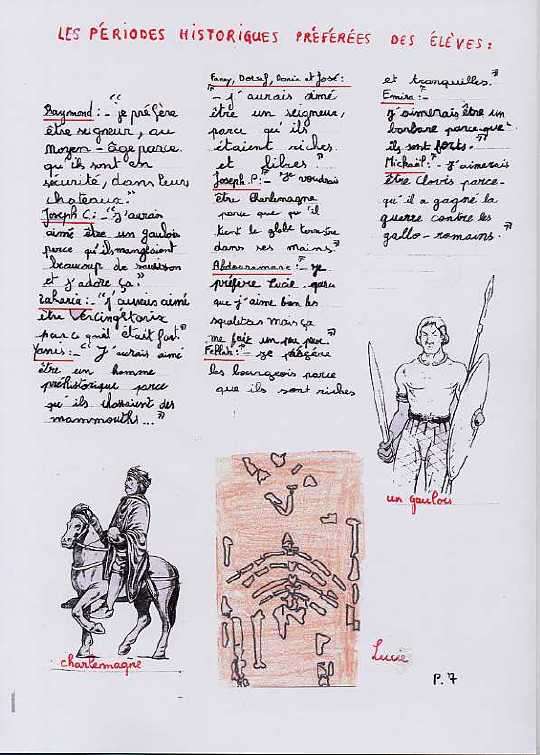 LES PÉRIODES HISTORIQUES PRÉFÉRÉES DES ÉLÈVES :
Raymond : - "je préfère
être seigneur, au
Moyen - âge parce
qu'ils sont en
sécurité, dans leurs
chateaux."
Joseph C : - "j'aurais
aimé être un gaulois
parce qu'ils mangeaient
beaucoup de
et j'adore ça."
Zakaria : - "j'aurais aimé
être Vercingétorix
parce qu'il était fort."
Yanis : - "J'aurais aimé
être un homme
préhistorique parce
qu'ils chassaient des
mammouths..."
Fanny, et José :
"- j'aurais aimé
être un seigneur,
parce qu'ils
étaient riches
et libres."
Joseph P : - "je voudrais
être Charlemagne
parce que qu'il
tient le globe terrestre
dans ses mains."
Abdouramane : - je
préfère Lucie parce
que j'aime bien les
squelettes mais ça
me fait un peu peur.
Fellah : - je préfère
les bourgeois parce
que ils sont riches
et tranquilles."
Emira : -
j'aimerais être un
barbare parce-que
ils sont forts."
Michaël : - j'aimerais
être Clovis parce-
qu'il a gagné la
guerre contre les
gallo-romains."
un gaulois
charlemagne
Lucie
P. 7